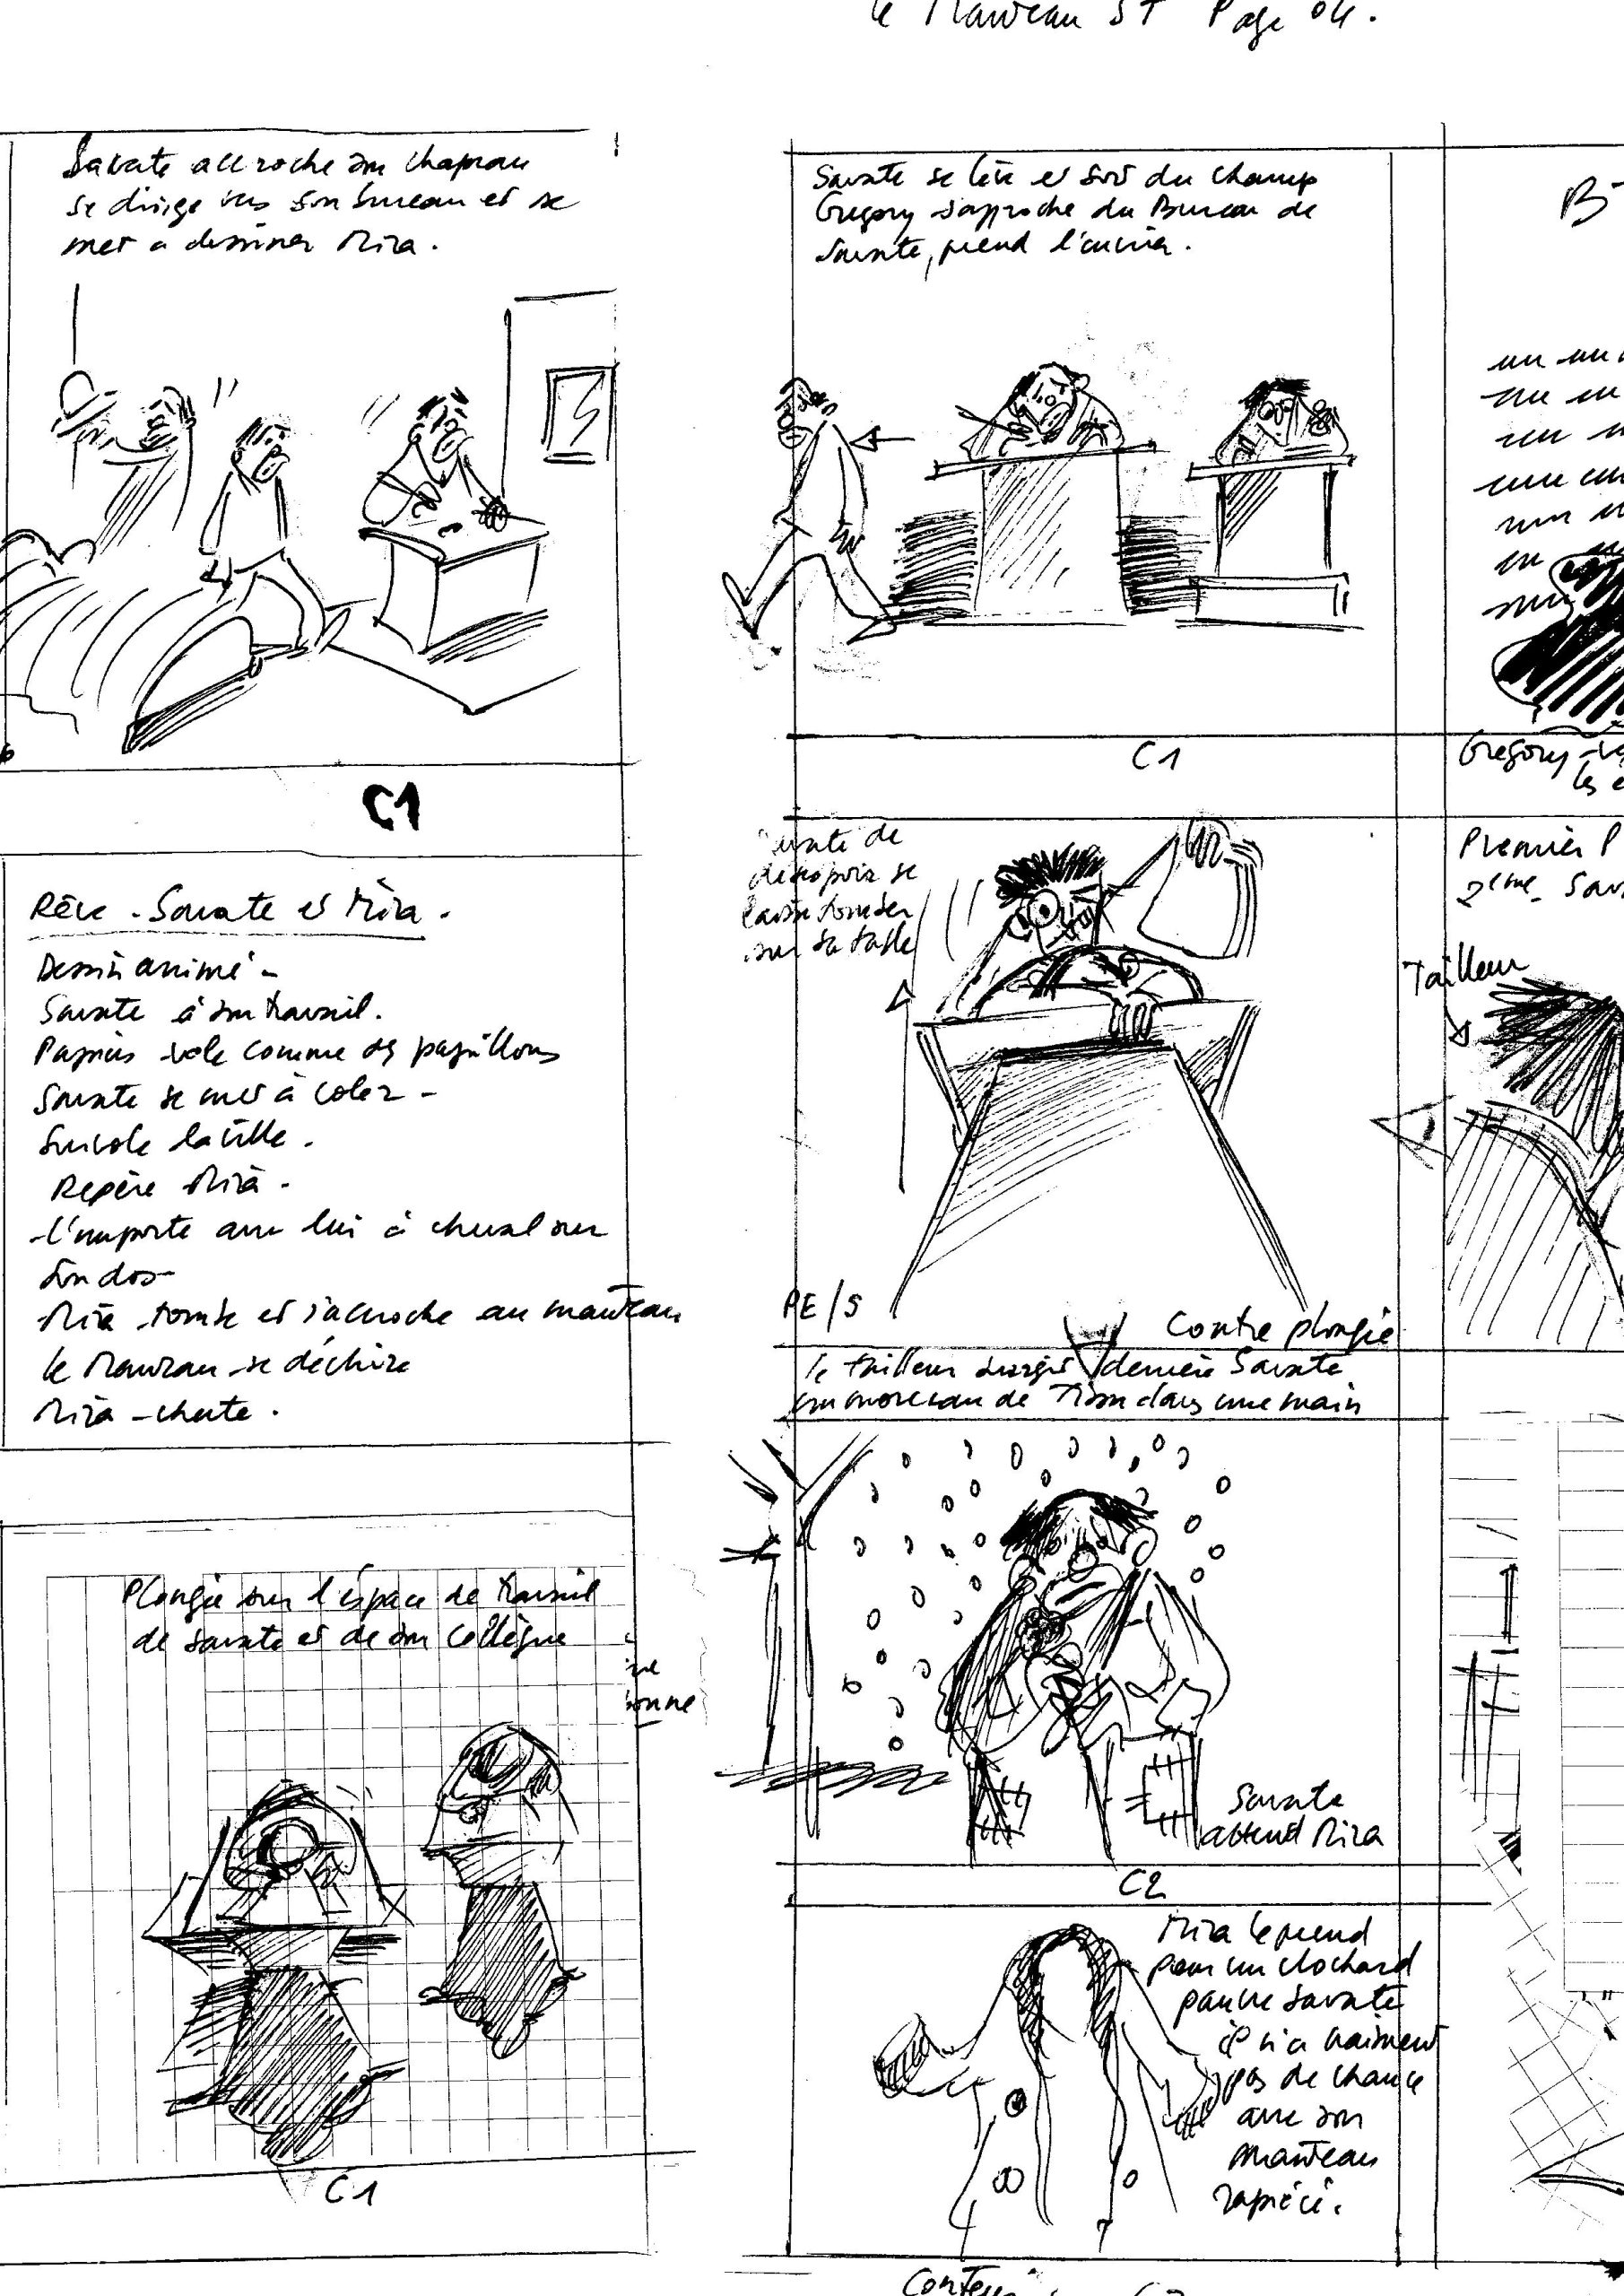 le Manteau ST Page 04.
Savate accroche son chapeau
se dirige vers son bureau et se
met a dessiner Mira.
C1
Rêve - Savate et Mira.
Dessin animé -
Savate à son travail.
Papiers vole comme des papillons
Savate se met à voler -
Survole la ville.
Repère Mira.
- l'emporte avec lui à cheval sur
son dos -
Mira tombe et s'accroche au manteau
le Manteau se déchire
Mira - chute.
Plongée sur l'éspace de travail
de Savate et de son collègue
C1
Savate se lève et sort du champ
Gregory s'approche du Bureau de
Savate, prend l'encrier.
C1
Savate de
désespoir se
laisse tomber
sur sa table
PE/S
Contre plongée
le tailleur surgit derrière Savate
un morceau de tissu dans une main
Savate
attend Mira
C2
Mira le prend
pour un clochard
pauvre Savate
il n'a vraiment
pas de chance
avec son
manteau
rapiécé.
Gregory
les
Premier P
2ème
Tailleur